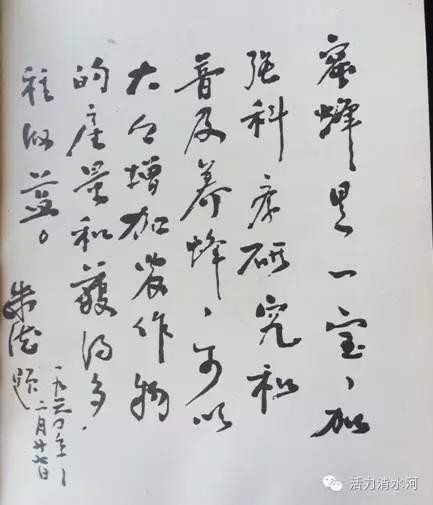 蜜蜂是一宝、加
强科学研究和
普及养蜂、可以
大大增加农作物
的产量和獲得多
种收益。
朱德题
一九六〇年
二月廿七日
活力清水河